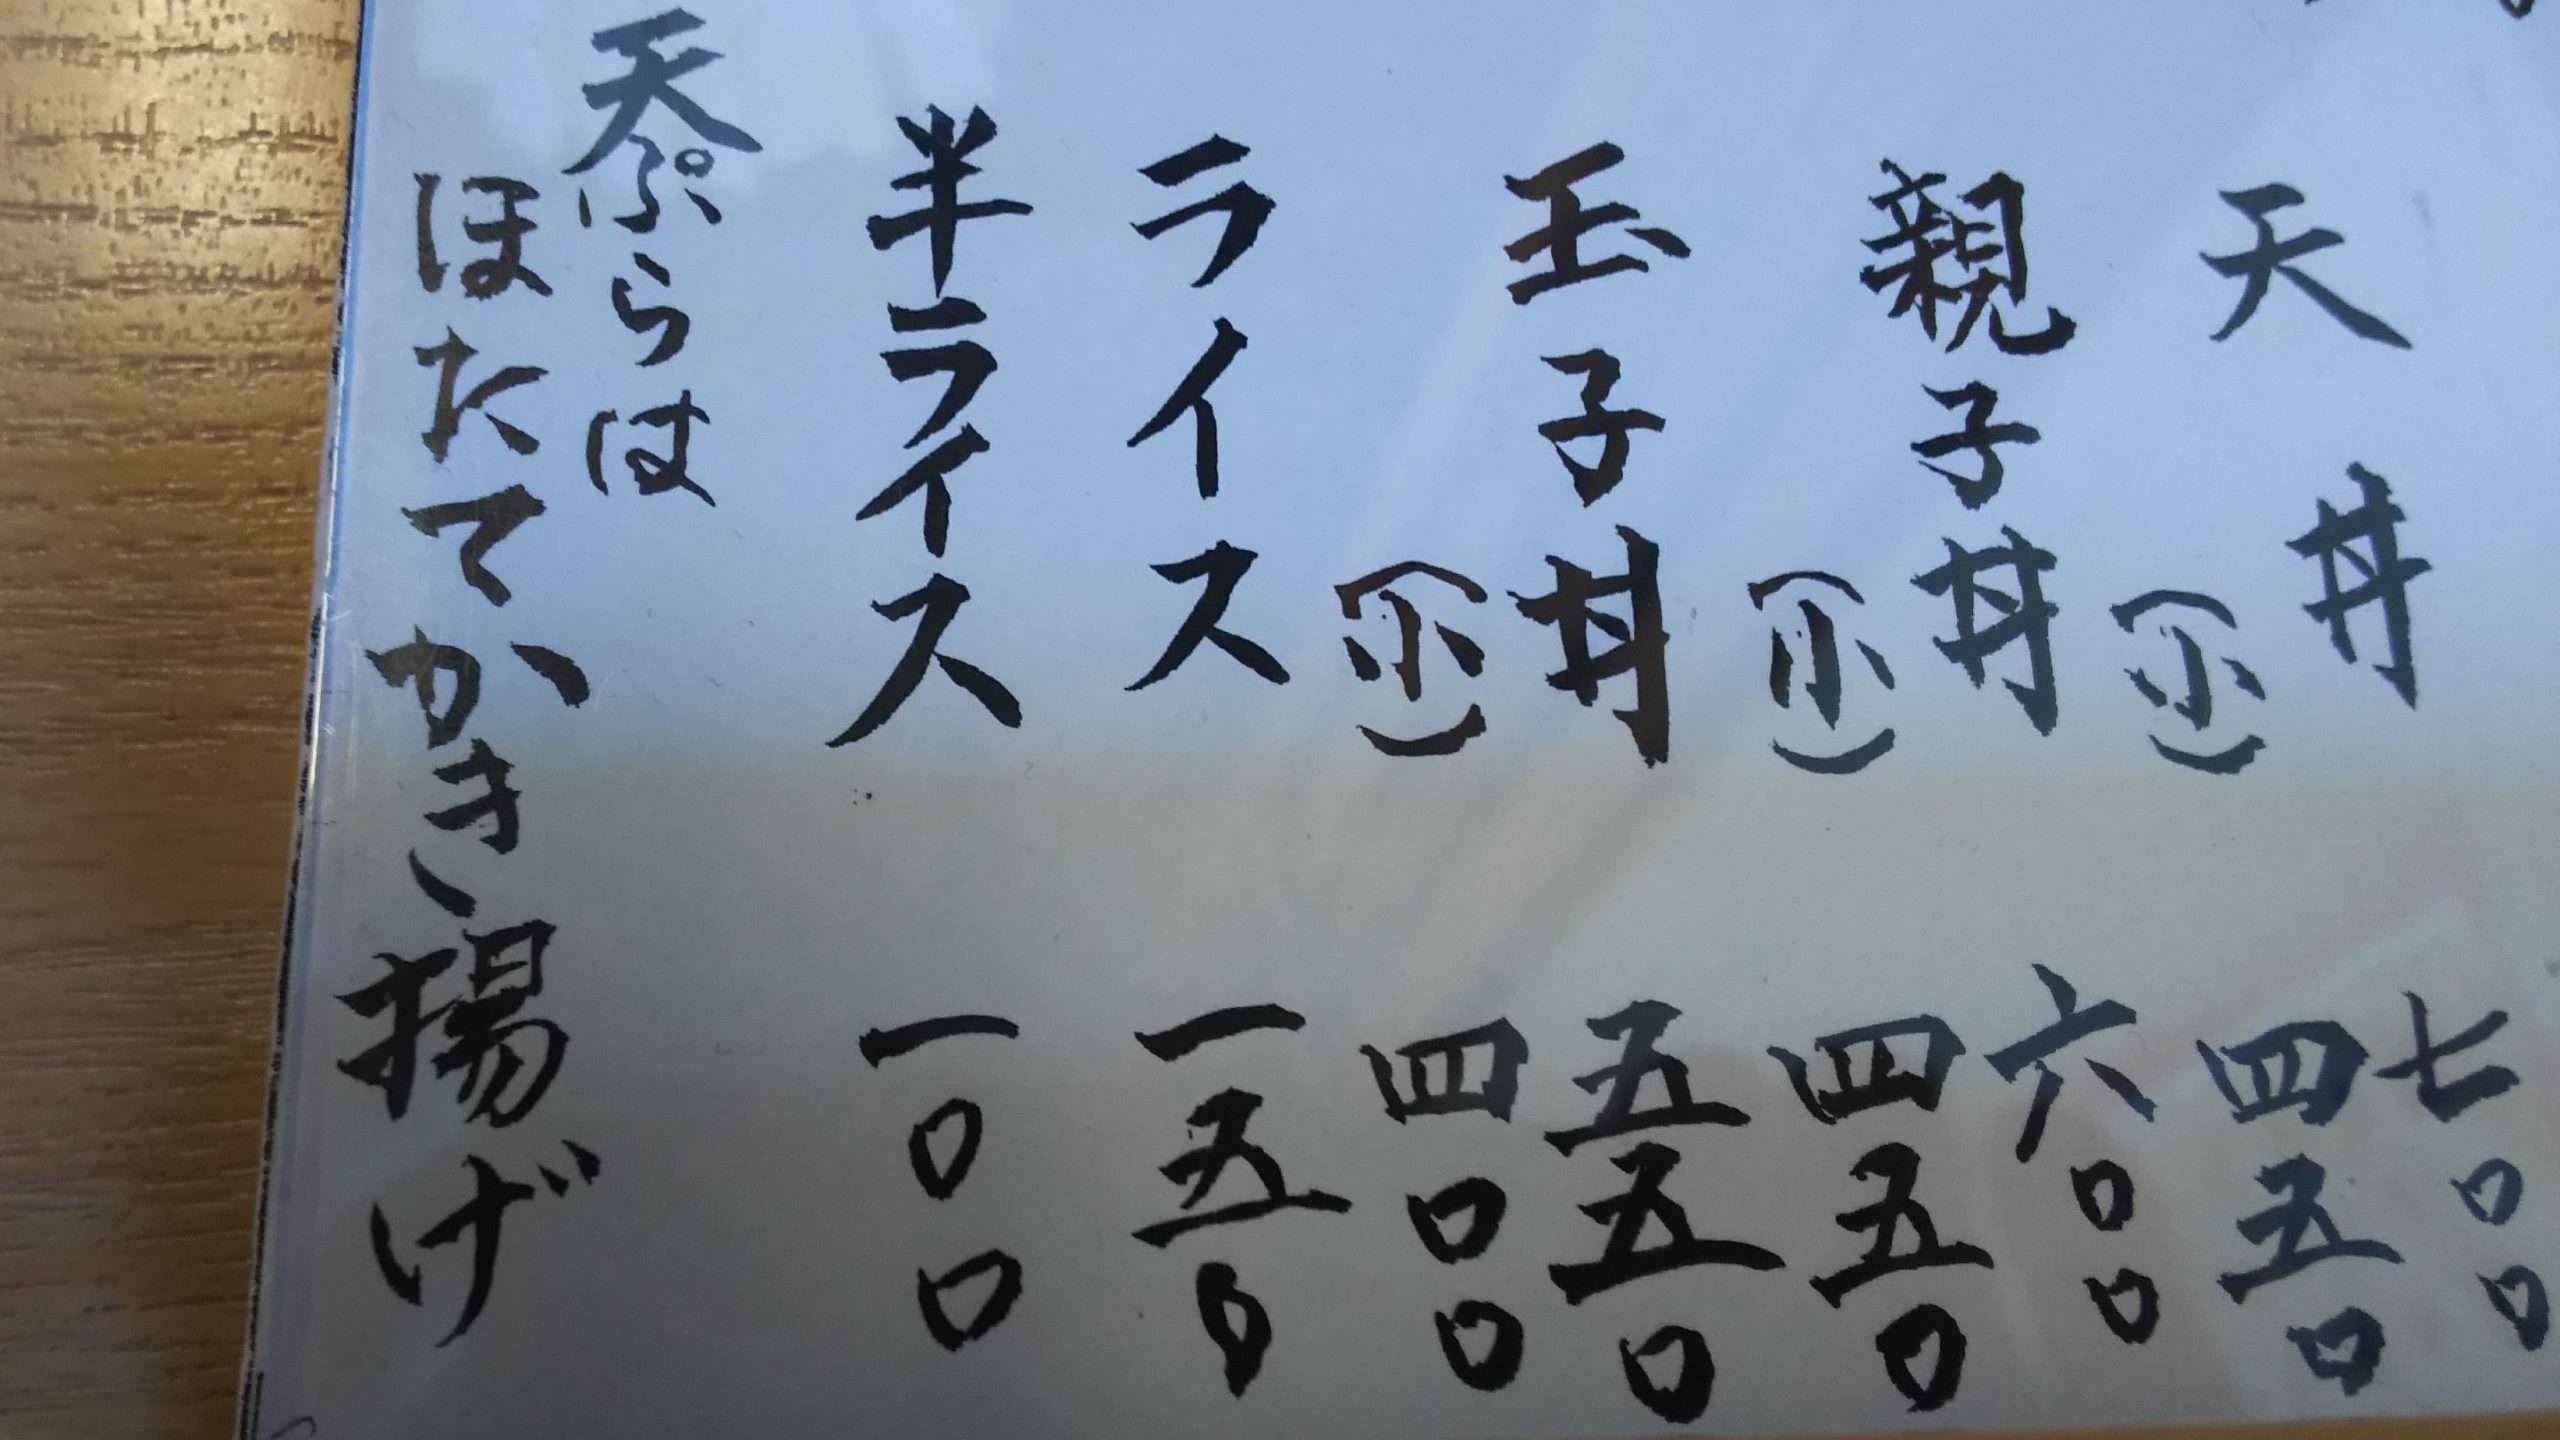 天丼 七〇〇
(小) 四五〇
親子丼 六〇〇
(小) 四五〇
玉子丼 五五〇
(小) 四〇〇
ライス 一五〇
半ライス 一〇〇
天ぷらは
ほたてかき揚げ